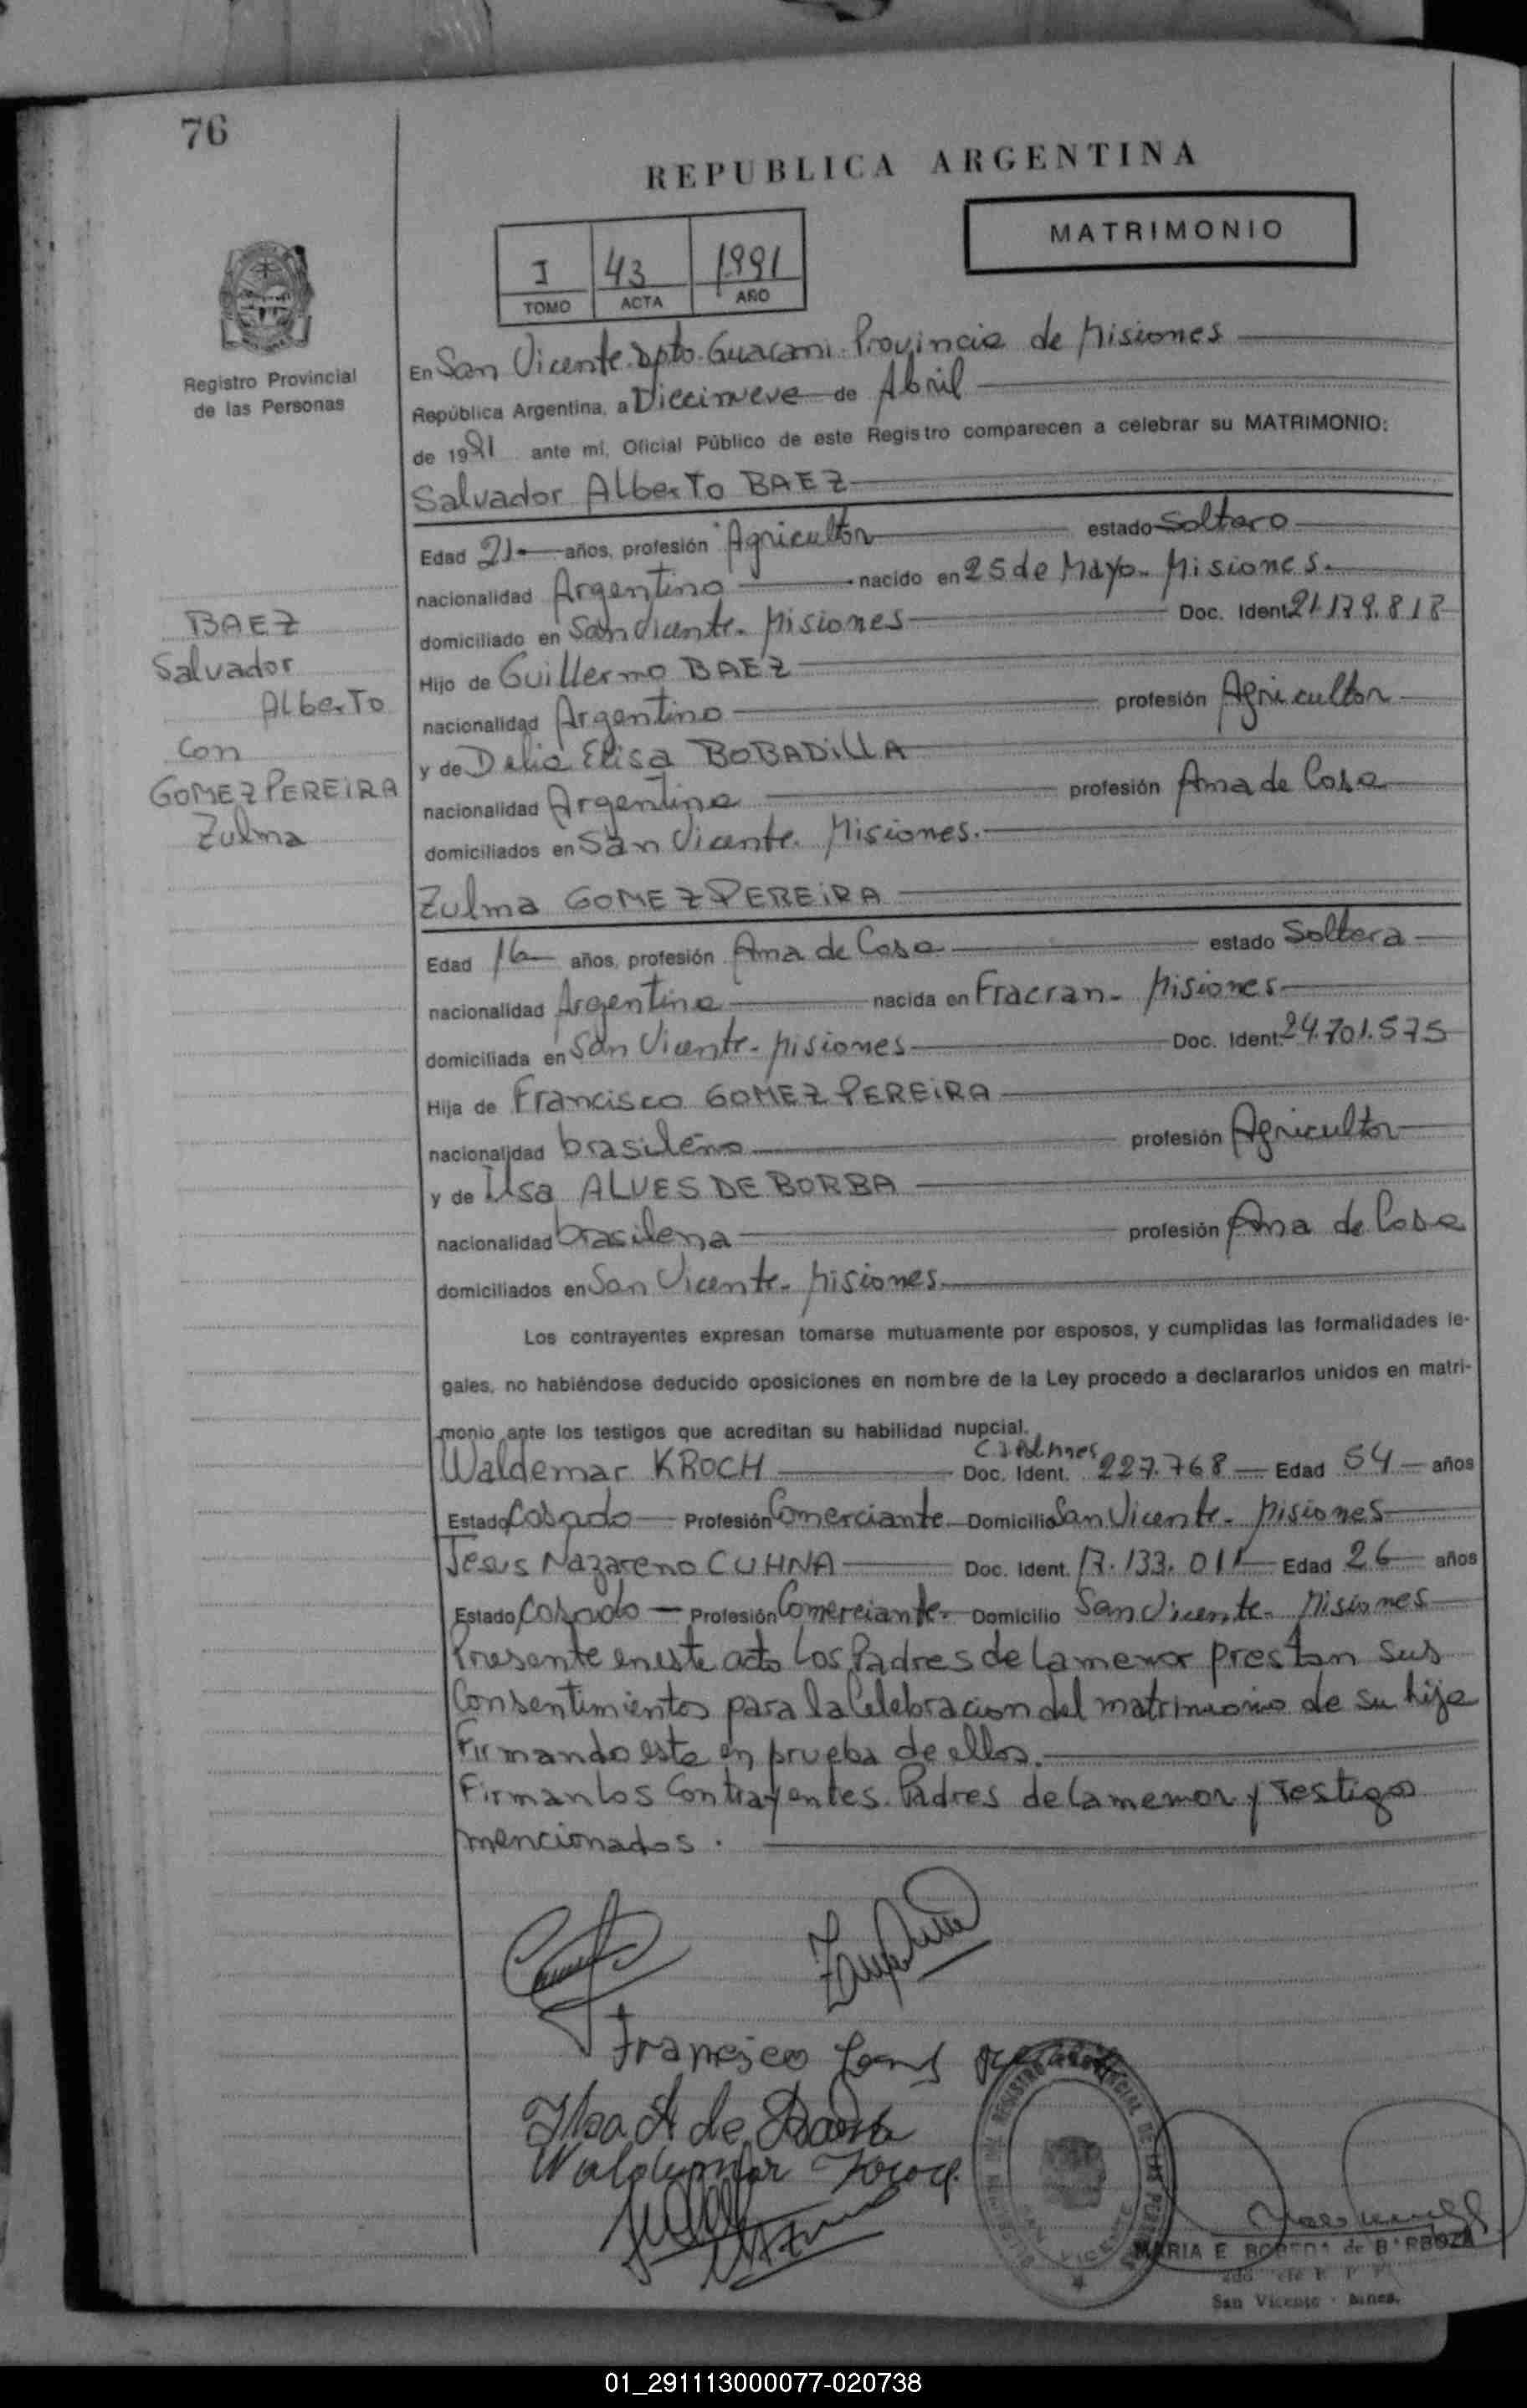 76
REPUBLICA ARGENTINA
MATRIMONIO
I 43 1991
TOMO ACTA AÑO
Registro Provincial
de las Personas
En San Vicente. Dpto. Guarani. Provincia de Misiones
República Argentina, a Diecinueve de Abril
de 1991 ante mí, Oficial Público de este Registro comparecen a celebrar su MATRIMONIO:
Salvador Alberto BAEZ
Edad 21 años, profesión Agricultor estado Soltero
nacionalidad Argentino nacido en 25 de Mayo. Misiones.
domiciliado en San Vicente. Misiones Doc. Ident. 21.179.818
Hijo de Guillermo BAEZ
nacionalidad Argentino profesión Agricultor
y de Delia Elisa BOBADILLA
nacionalidad Argentina profesión Ama de Casa
domiciliados en San Vicente. Misiones.
BAEZ
Salvador
Alberto
Con
GOMEZ PEREIRA
Zulma
Zulma GOMEZ PEREIRA
Edad 16 años, profesión Ama de Casa estado Soltera
nacionalidad Argentina nacida en Fracran. Misiones
domiciliada en San Vicente. Misiones Doc. Ident. 24.701.575
Hija de Francisco GOMEZ PEREIRA
nacionalidad brasileño profesión Agricultor
y de Ilsa ALVES DE BORBA
nacionalidad brasilena profesión Ama de Casa
domiciliados en San Vicente. Misiones
Los contrayentes expresan tomarse mutuamente por esposos, y cumplidas las formalidades le-
gales, no habiéndose deducido oposiciones en nombre de la Ley procedo a declararlos unidos en matri-
monio ante los testigos que acreditan su habilidad nupcial.
Waldemar KROCH Doc. Ident. 227.768 Edad 54 años
Estado Casado Profesión Comerciante Domicilio San Vicente. Misiones
Jesus Nazareno CUHNA Doc. Ident. 17.133.011 Edad 26 años
Estado Casado Profesión Comerciante. Domicilio San Vicente. Misiones
Presente en este acto Los Padres de la menor prestan sus
Consentimientos para la Celebracion del matrimonio de su hija
Firmando este en prueba de ellos.
Firman los Contrayentes. Padres de la menor y Testigos
mencionados.
Francisco
Ilsa A de Borba
Waldemar
SAN VICENTE
MARIA E de BARBOZA
San Vicente - Mnes.
01_291113000077-020738